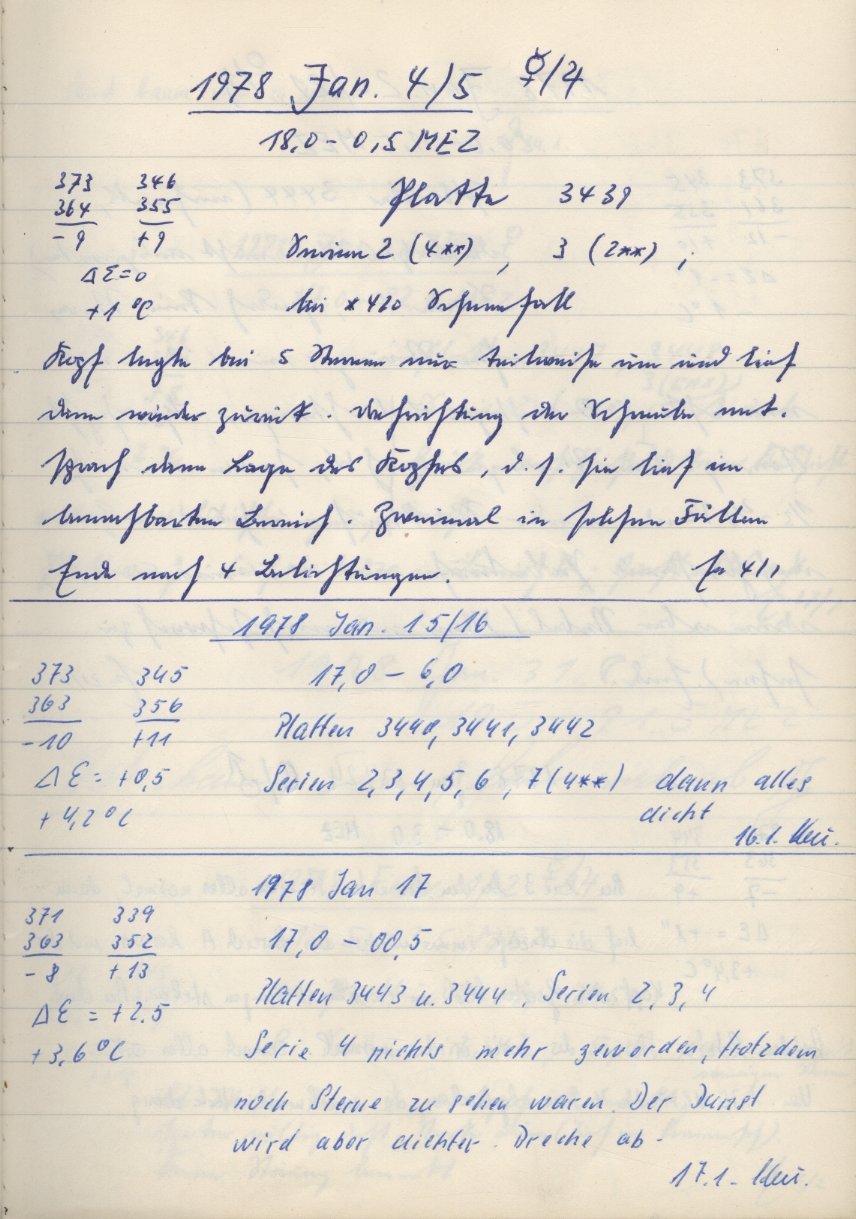 1978 Jan. 4/5 ☿/♃
18,0 – 0,5 MEZ
373 346 Platte 3439
364 355
-9 +9 Serien 2 (4**), 3 (2**);
Δε=0
+1 °C bei *420 Schneefall
Kopf legte bei 5 Sternen nur teilweise um und lief
dann wieder zurück. Drehrichtung der Schraube ent-
sprach dann Lage des Kopfes, d.h. sie lief im
benachbarten Bereich. Zweimal in solchen Fällen
Ende nach 4 Belichtungen. 4/1
1978 Jan. 15/16
373 345 17,0 – 6,0
363 356
-10 +11 Platten 3440, 3441, 3442
Δε = +0,5 Serien 2,3,4,5,6, 7(4**) dann alles
+4,2 °C dicht
16.1. Keu.
1978 Jan 17
371 339
363 352 17,0 – 00,5
-8 +13
Δε = +2.5 Platten 3443 u. 3444. Serien 2, 3, 4
+3,6 °C Serie 4 nichts mehr geworden, trotzdem
noch Sterne zu sehen waren. Der Dunst
wird aber dichter. Breche ab -
17.1. Keu.